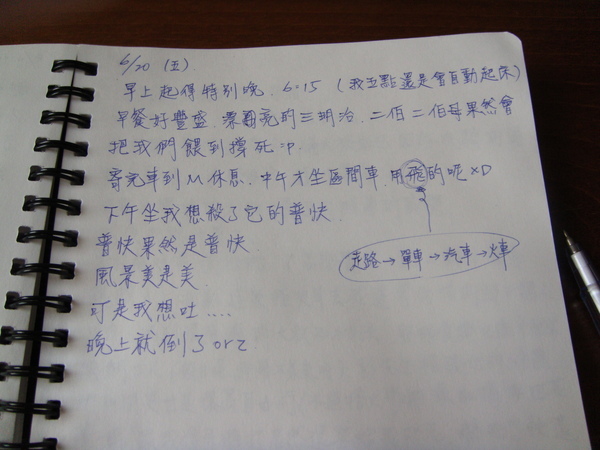 6/20 (五).
早上起得特別晚. 6:15 (我五點還是會自動起床)
早餐好豐盛. 漂亮的三明治. 二伯二伯母果然會
把我們餵到撐死 =p.
寄完車到M休息. 中午才坐區間車. 用飛的呢 xD
下午坐我想殺了它的普快.
普快果然是普快.
風景美是美.
可是我想吐....
晚上就倒了orz
走路→單車→汽車→火車